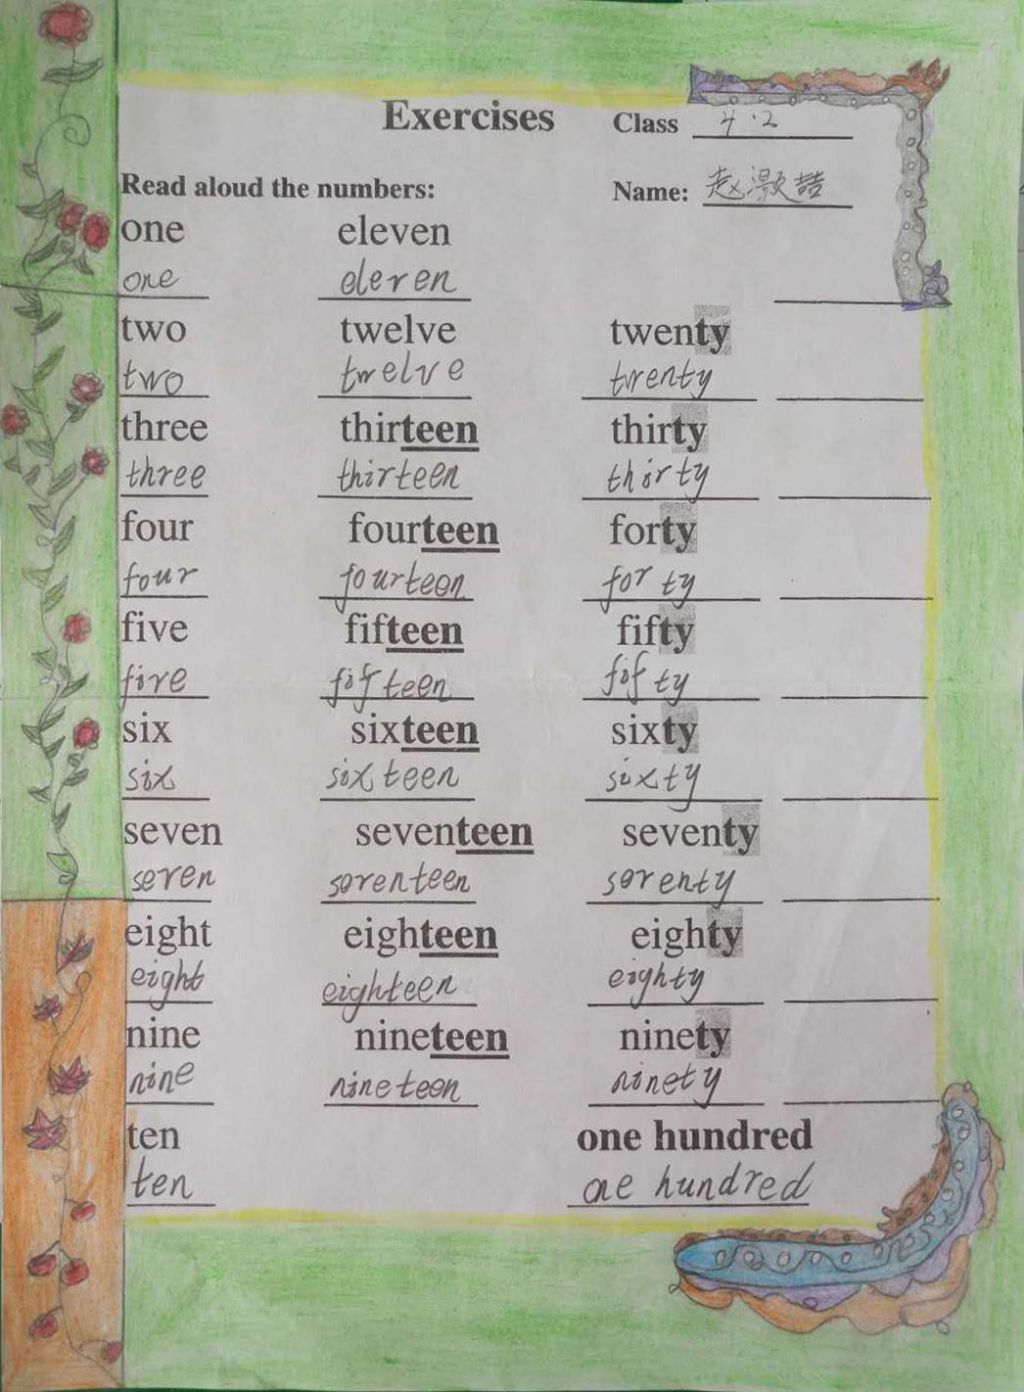 Exercises Class 4.2
Read aloud the numbers: Name:
one eleven
one eleven
two twelve twenty
two twelve twenty
three thirteen thirty
three thirteen thirty
four fourteen forty
four fourteen forty
five fifteen fifty
five fifteen fifty
six sixteen sixty
six sixteen sixty
seven seventeen seventy
seven seventeen seventy
eight eighteen eighty
eight eighteen eighty
nine nineteen ninety
nine nineteen ninety
ten one hundred
ten one hundred